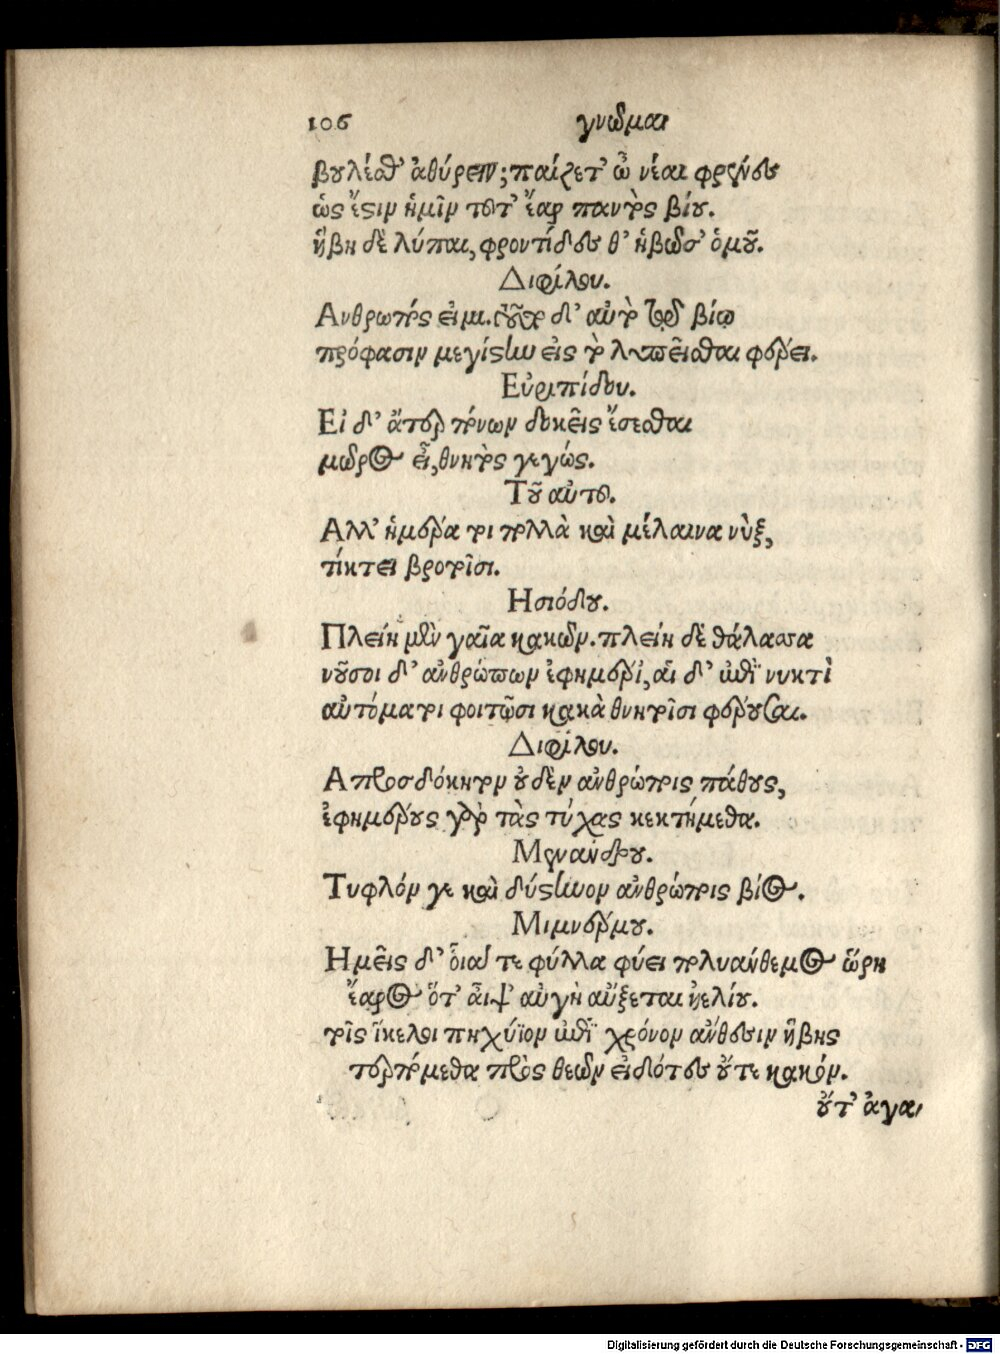 106 γνῶμαι
βουλέσθ' ἀθύρειν; παίζετ' ὦ νέαι φρένες
ὡς ἔστιν ἡμῖν τοῦτ' ἔαρ παντὸς βίου.
ἥβη δὲ λύπαι, φροντίδες θ' ἡβῶσ' ὁμοῦ.
Διφίλου.
Ανθρωπός εἰμι. τοῦτο δ' αὐτὸ τῷ βίῳ
πρόφασιν μεγίστην εἰς τὸ λυπεῖσθαι φέρει.
Εὐριπίδου.
Εἰ δ' ἄτερ πόνων δοκεῖς ἔσεσθαι
μωρὸς εἶ, θνητὸς γεγώς.
Τοῦ αὐτοῦ.
Αλλ' ἡμέρα τοι πολλὰ καὶ μέλαινα νὺξ,
τίκτει βροτοῖσι.
Ησιόδου.
Πλείη μὲν γαῖα κακῶν. πλείη δὲ θάλασσα
νοῦσοι δ' ἀνθρώπων ἐφημέριοι, αἱ δ' ἐπὶ νυκτὶ
αὐτόματοι φοιτῶσι κακὰ θνητοῖσι φέρουσαι.
Διφίλου.
Απροσδόκητον οὐδὲν ἀνθρώποις πάθους,
ἐφημέρους γὰρ τὰς τύχας κεκτήμεθα.
Μενάνδρου.
Τυφλόν γε καὶ δύστηνον ἀνθρώποις βίος.
Μιμνέρμου.
Ημεῖς δ' οἷά τε φύλλα φύει πολυάνθεμος ὥρη
ἔαρος ὅτ' αἶψ' αὐγὴ αὔξεται ἠελίου.
τοῖς ἴκελοι πηχύϊον ἐπὶ χρόνον ἄνθεσιν ἥβης
τερπόμεθα πρὸς θεῶν εἰδότες οὔτε κακόν.
οὔτ' ἀγα
Digitalisierung gefördert durch die Deutsche Forschungsgemeinschaft - DFG